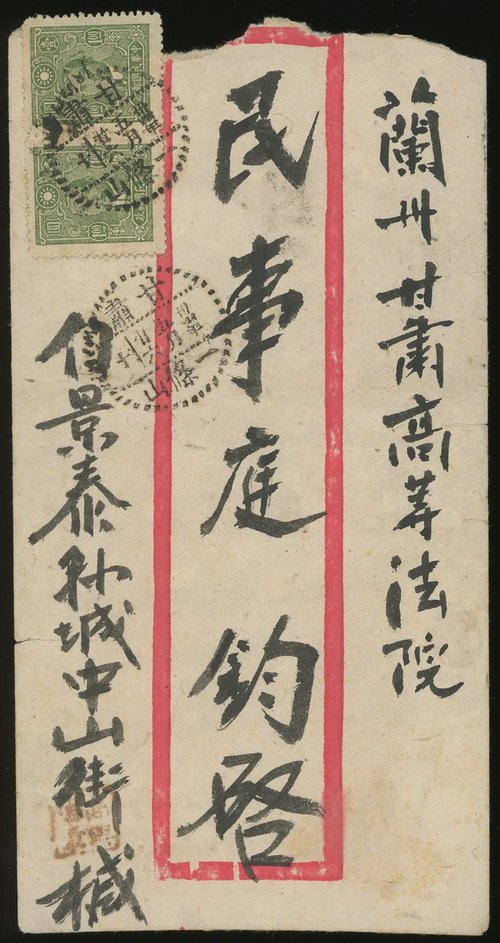 蘭州甘肅高等法院
民事庭 鈞啓
自景泰孙城中山街槭
甘肅
一條山
甘肅
一條山